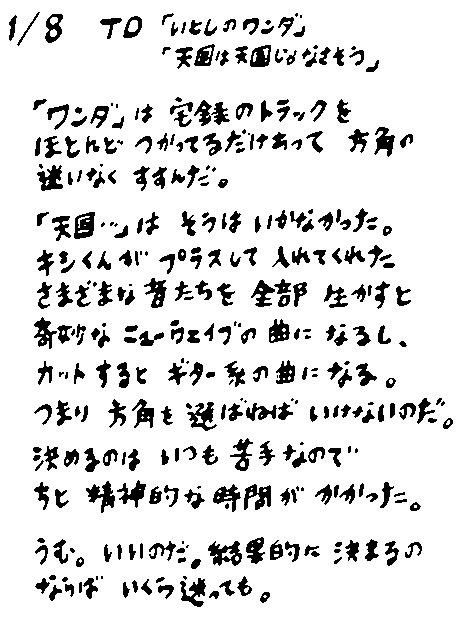 1/8 TD 「いとしのワンダ」
「天国は天国じゃなさそう」
「ワンダ」は 宅録のトラックを
ほとんど つかってるだけあって 方角の
迷いなく すすんだ。
「天国…」は そうは いかなかった。
キシくんが プラスして 入れてくれた
さまざまな音たちを 全部 生かすと
奇妙な ニューウェイブの 曲に なるし、
カットすると ギター系の曲になる。
つまり 方角を 選ばねば いけないのだ。
決めるのは いつも 苦手なので
ちと 精神的な時間が かかった。
うむ。いいのだ。結果的に 決まるの
ならば いくら迷っても。